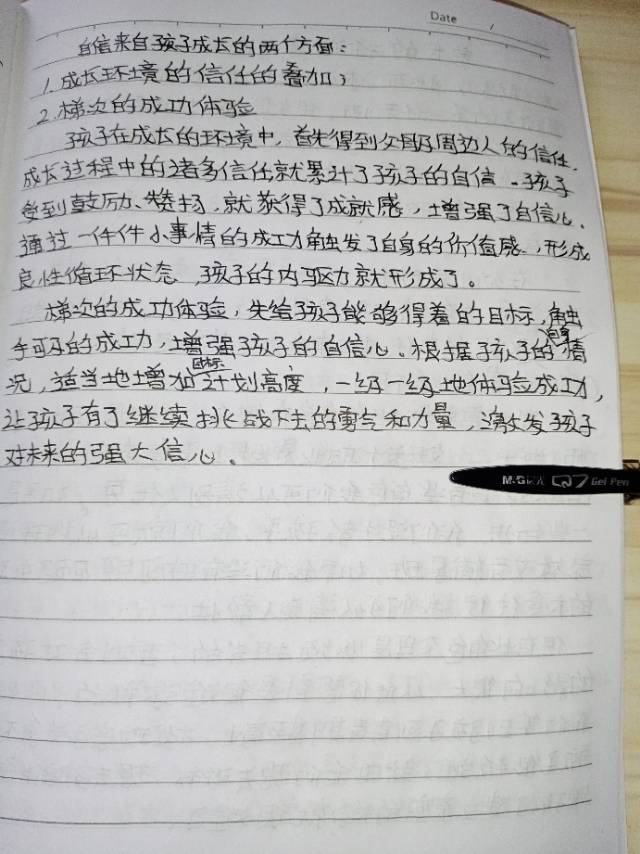 Date /
自信来自孩子成长的两个方面：
1. 成长环境的信任的叠加；
2. 梯次的成功体验
孩子在成长的环境中，首先得到父母及周边人的信任．
成长过程中的诸多信任就累计了孩子的自信．孩子
受到鼓励、赞扬，就获得了成就感，增强了自信心。
通过一件件小事情的成功触发了自身的价值感，形成
良性循环状态，孩子的内驱力就形成了。
梯次的成功体验，先给孩子能够得着的目标，触
手可及的成功，增强孩子的自信心。根据孩子的自身情
况，适当地增加目标计划高度，一级一级地体验成功，
让孩子有了继续挑战下去的勇气和力量，激发孩子
对未来的强大信心。
M&G Gel Pen